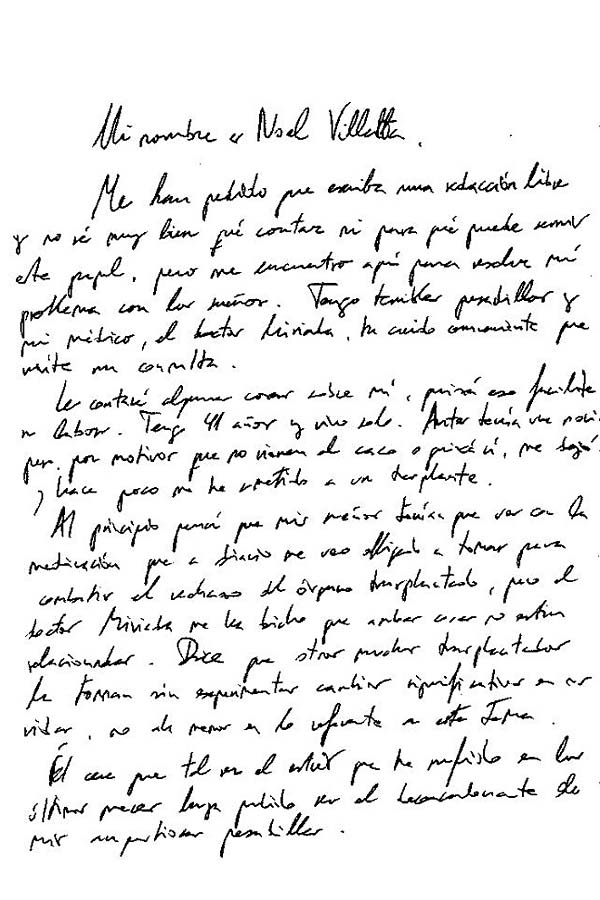 Mi nombre es Noel Villalta.
Me han pedido que escriba una redacción libre
y no sé muy bien qué contar ni para qué puede servir
este papel, pero me encuentro aquí para resolver mi
problema con los sueños. Tengo terribles pesadillas y
mi médico, el doctor Miviada, ha creído conveniente que
visite su consulta.
Le contaré algunas cosas sobre mí, quizá eso facilite
su labor. Tengo 41 años y vivo solo. Antes tenía una novia
pero, por motivos que no vienen al caso o quizá sí, me dejó
y hace poco me he sometido a un trasplante.
Al principio pensé que mis sueños tenían que ver con la
medicación que a diario me veo obligado a tomar para
combatir el rechazo del órgano trasplantado, pero el
doctor me ha dicho que ambas cosas no están
relacionadas. Dice que otros muchos trasplantados
la toman sin experimentar cambios significativos en sus
vidas, no al menos en lo referente a este tema.
Él cree que tal vez el estrés que he sufrido en los
últimos meses haya podido ser el desencadenante de
mis pesadillas.